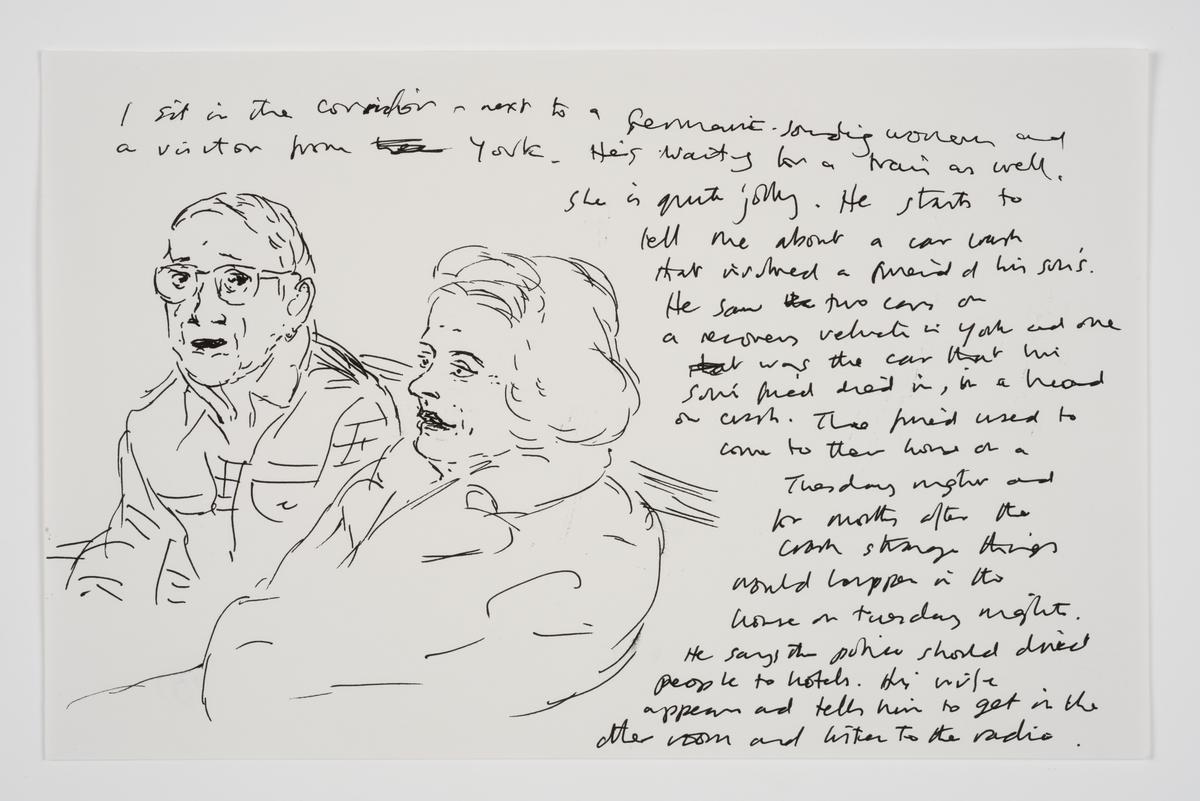 I sit in the corridor - next to a Germanic-sounding woman and
a visitor from York. He's waiting for a train as well.
She is quite jolly. He starts to
tell me about a car crash
that involved a friend of his son's.
He saw two cars on
a recovery vehicle in York and one
was the car that his
son's friend died in, in a head
on crash. The friend used to
come to their home on a
Tuesday night and
for months after the
crash strange things
would happen in the
house on Tuesday nights.
He says the police should direct
people to hotels. His wife
appears and tells him to get in the
other room and listen to the radio.